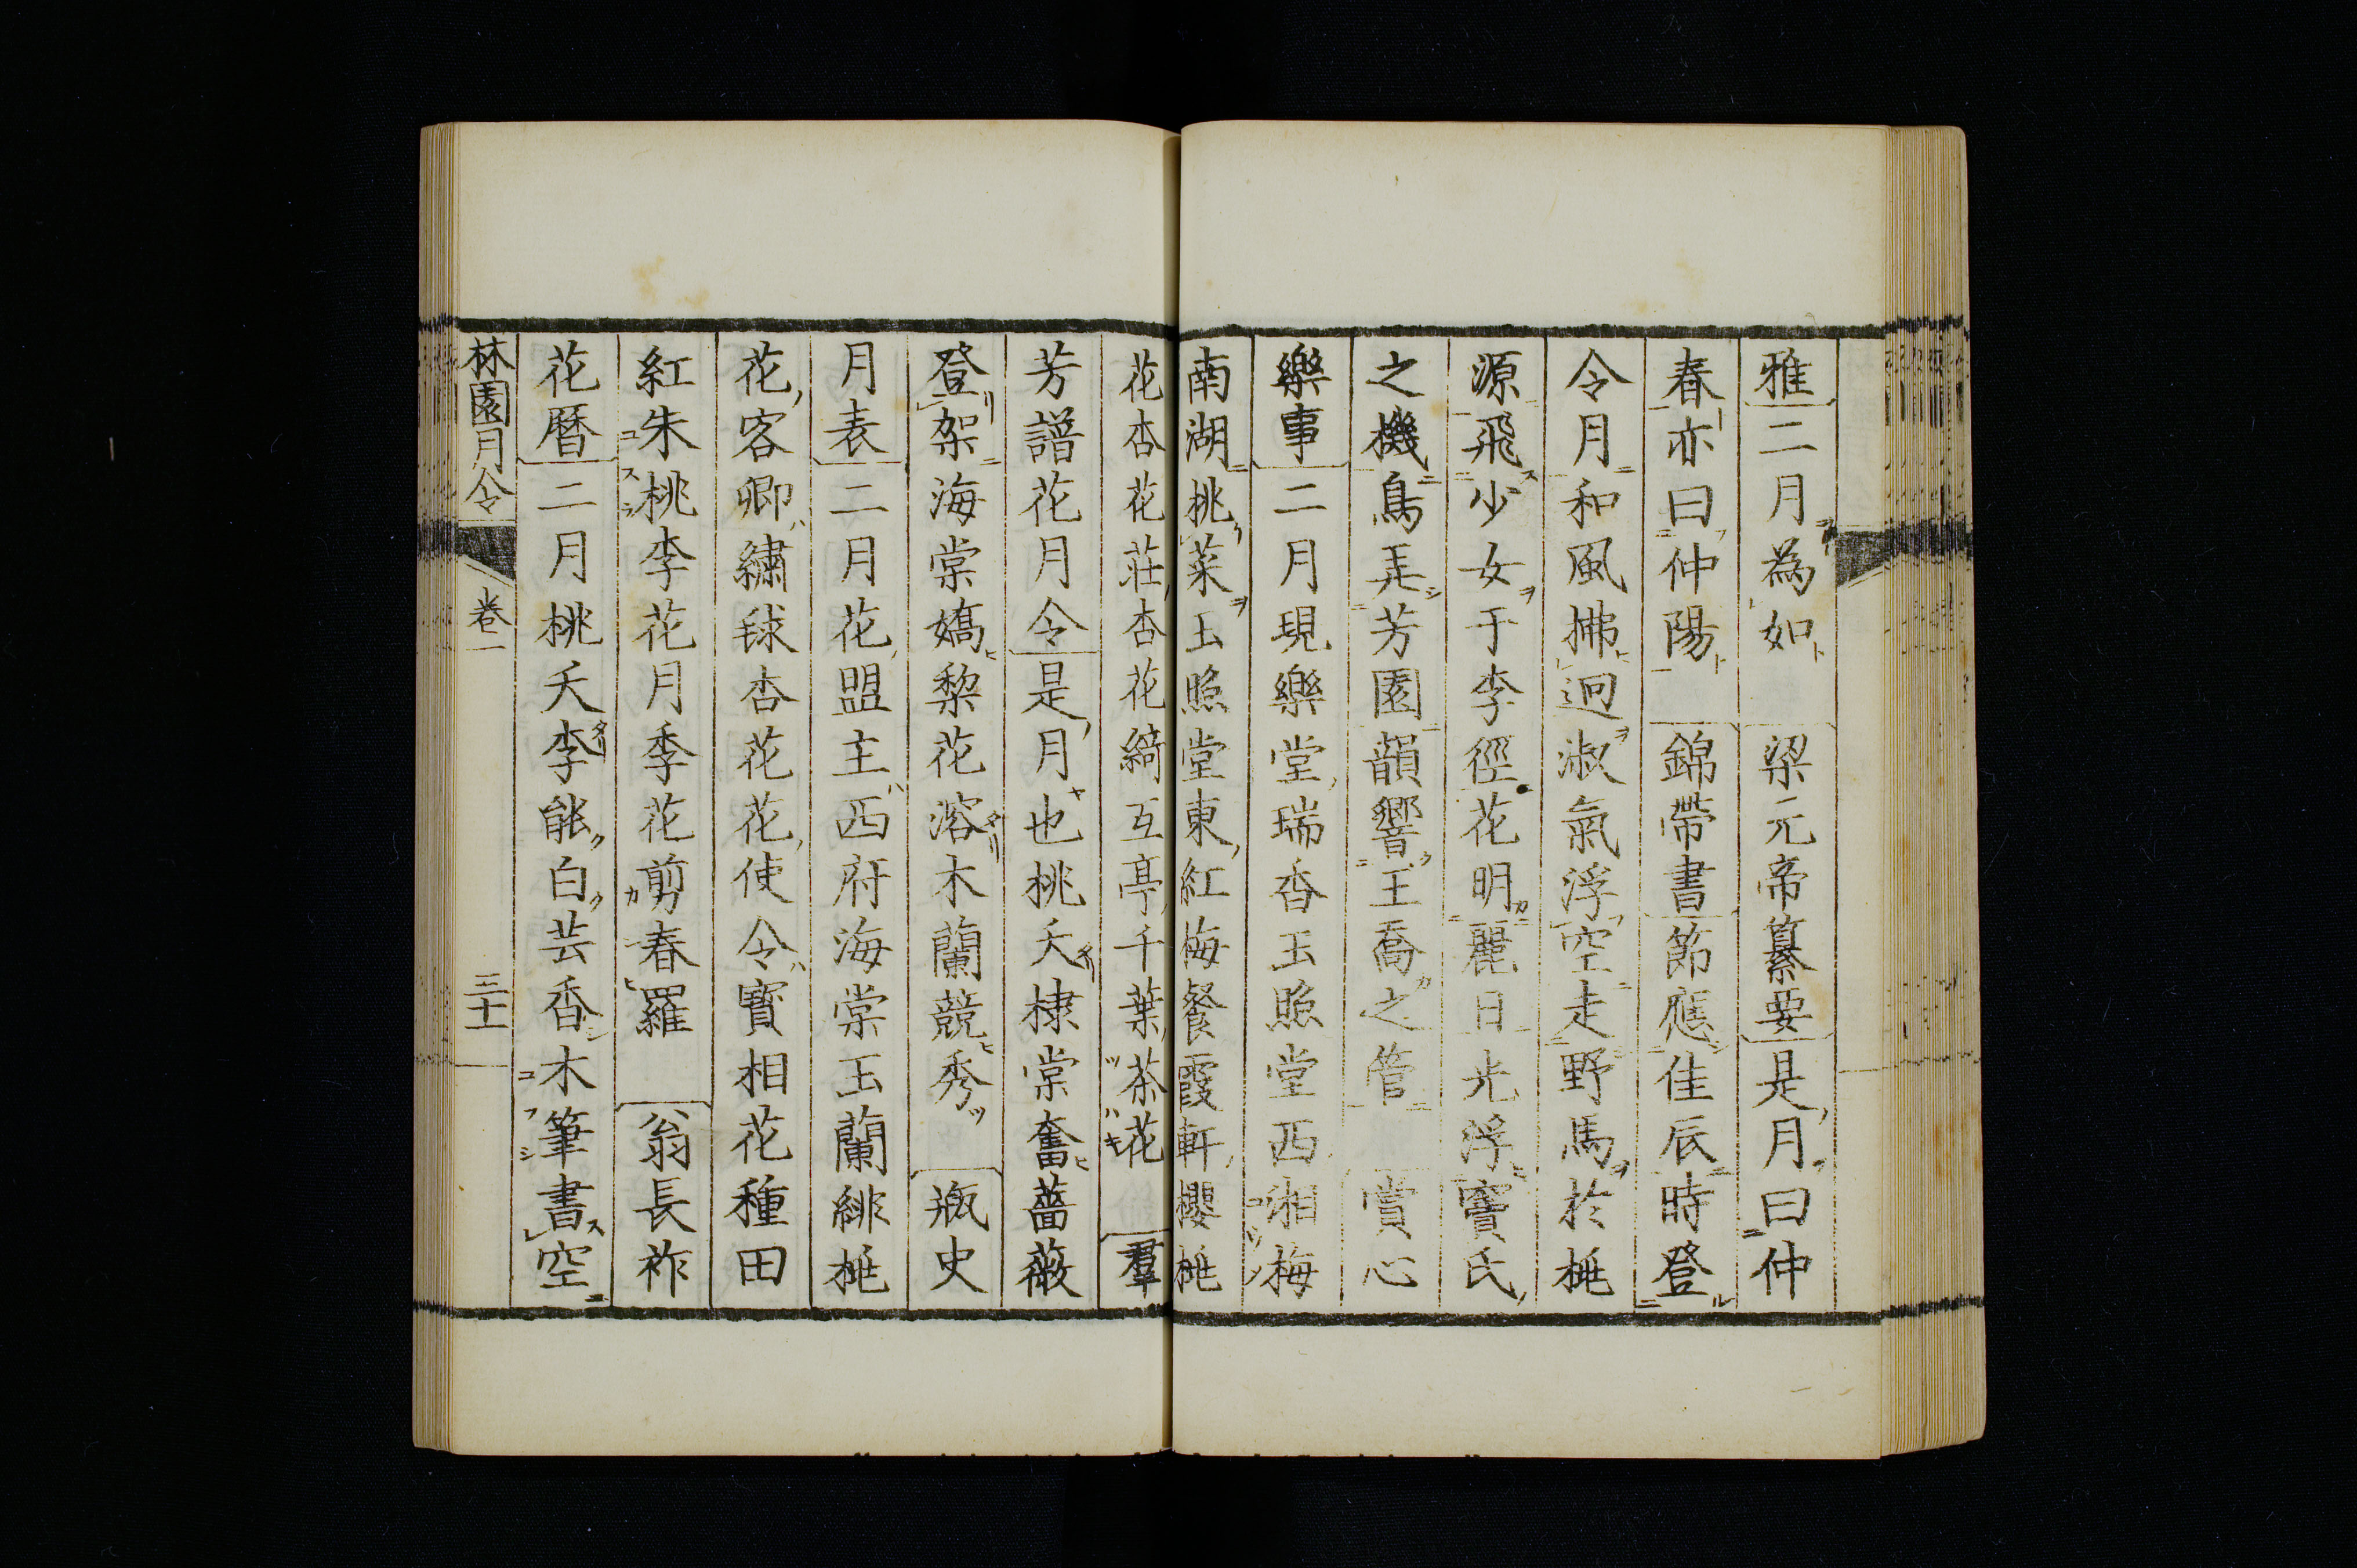 雅二月為如　梁元帝纂要是月曰仲
春亦曰仲陽　錦帶書節應佳辰時登
令月和風拂迥淑氣浮空走野馬於桃
源飛少女于李徑花明麗日光浮竇氏
之機鳥弄芳園韻響王喬之管　賞心
樂事二月現樂堂瑞香玉照堂西湘梅
南湖挑菜玉照堂東紅梅餐霞軒櫻桃
花杏花莊杏花綺互亭千葉茶花　羣
芳譜花月令是月也桃夭棣棠奮薔薇
登架海棠嬌梨花溶木蘭競秀　瓶史
月表二月花盟主西府海棠玉蘭緋桃
花客卿繡毬杏花花使令寶相花種田
紅朱桃李花月季花剪春羅　翁長祚
花曆二月桃夭李能白芸香木筆書空
林園月令　卷一　三十一